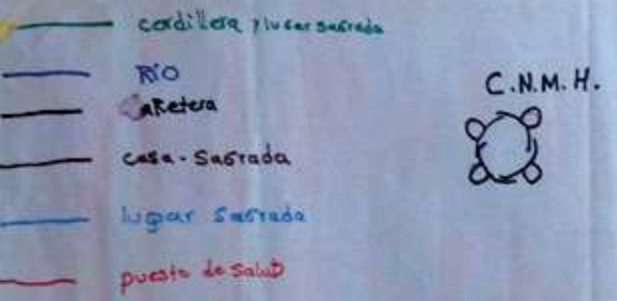 cordillera y lugar sagrada
RÍO
caRetera
casa - Sagrada
lugar Sagrada
puesto de SaluD
C.N.M.H.